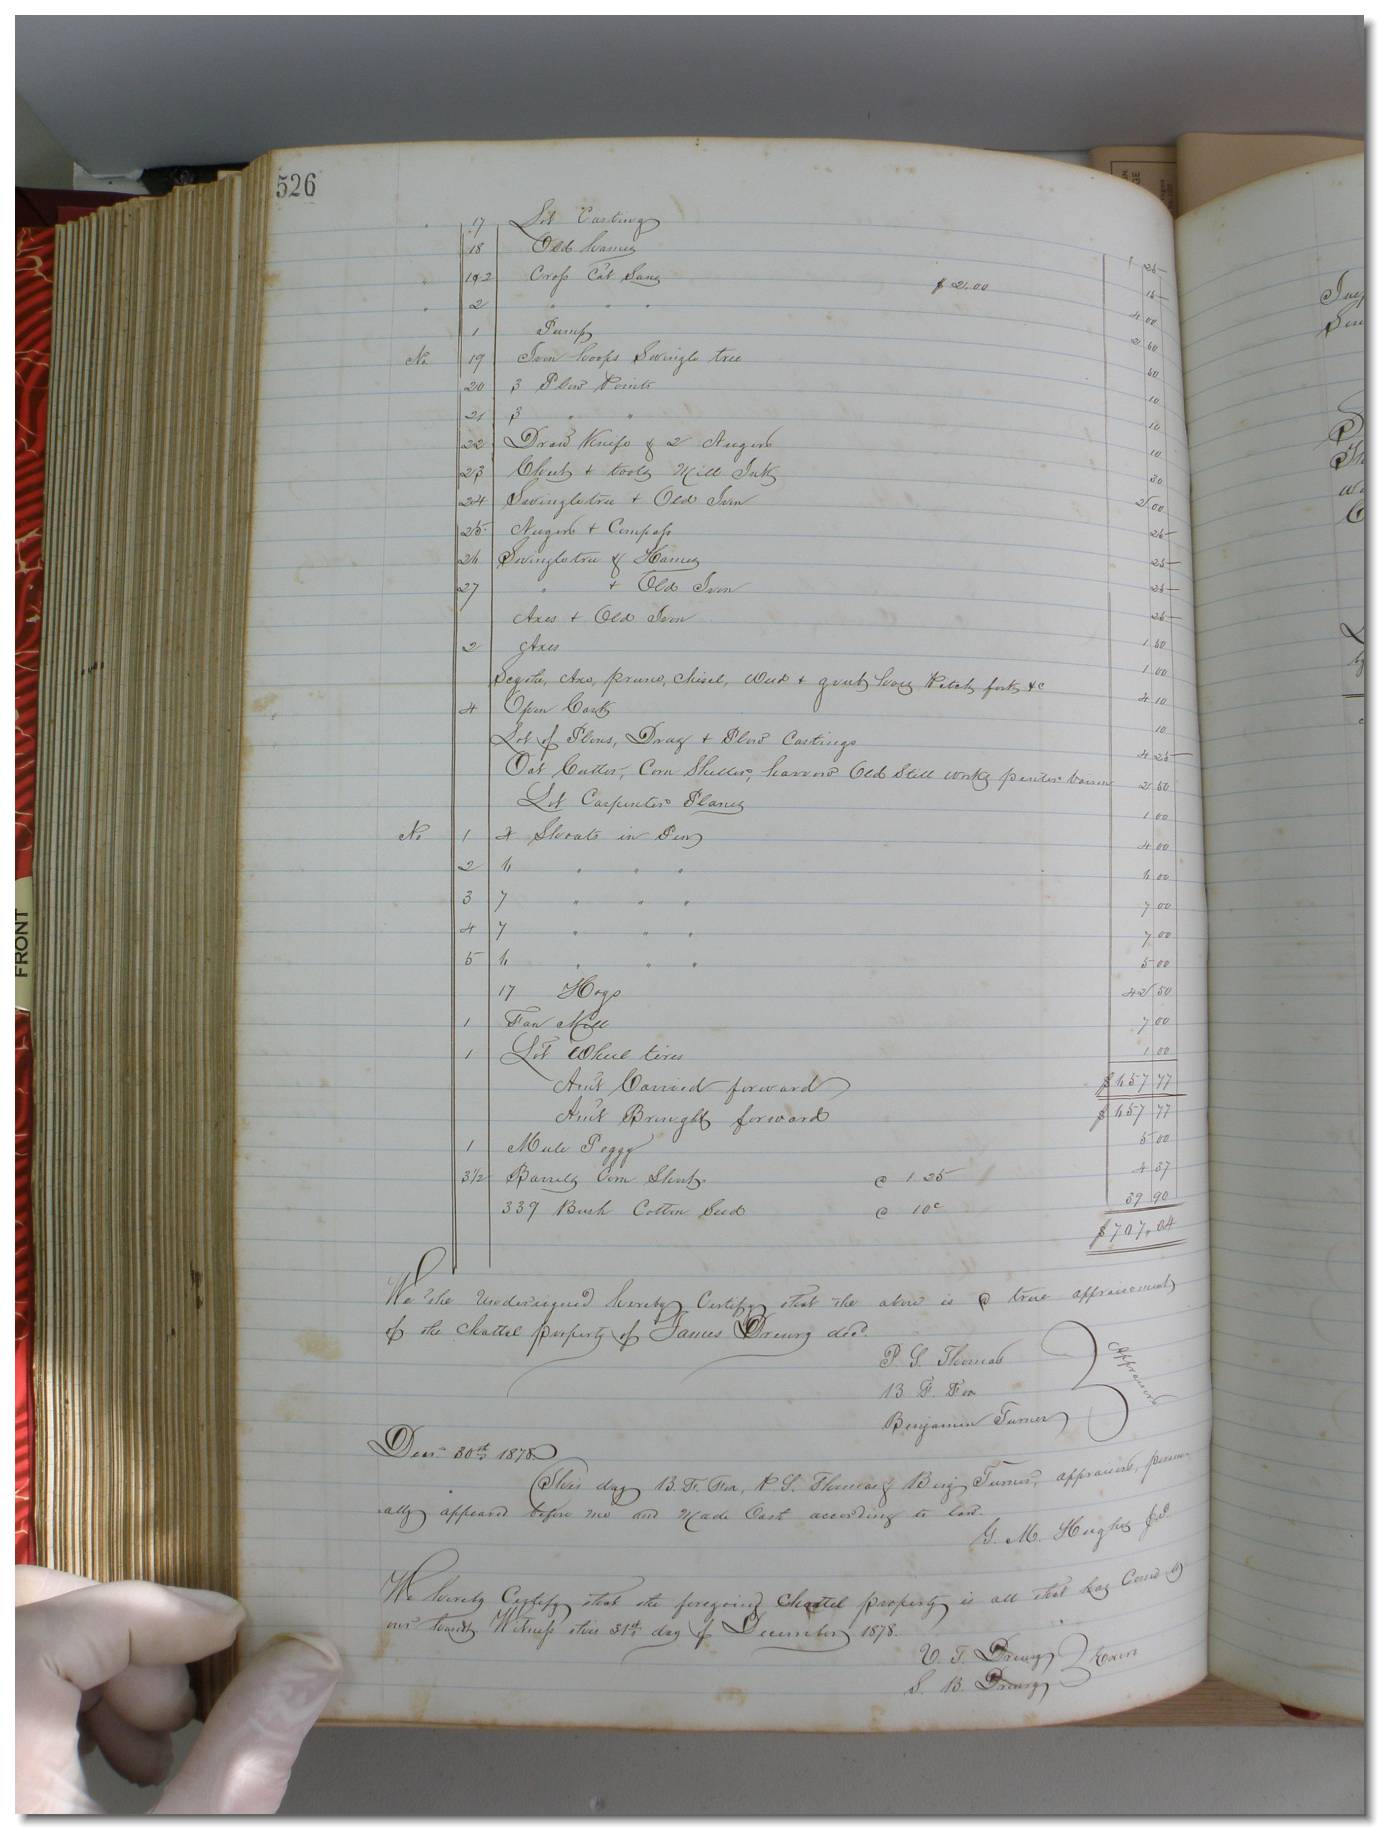 526
17 Lot Castings 1 25
18 Old hames 15
19 2 Cross Cut Saws $ 2.00 4 00
2 " " " 2 50
1 Pump 50
No 19 Iron hoops Swingle tree 10
20 3 Plow Points 10
21 3 " " 10
22 Draw Knife & 2 Augers 30
23 Chest + tools Mill Inks 2 00
24 Swingletree + Old Iron 25
25 Augers + Compass 25
26 Swingletree & Hames 25
27 " + Old Iron 25
Axes + Old Iron 1 50
2 Axes 1 00
Scythe, Axe, pruno, chisel, weed + grub hoes Pitch fork &c 4 10
4 Open Casks 10
Lot of Plows, Drag + Plow Castings 4 25
Oat Cutter, Corn Sheller, harrow Old Still works 2 50
Lot Carpenters Planes 1 00
No 1 4 Shoats in Pen 4 00
2 6 " " " 6 00
3 7 " " " 7 00
4 7 " " " 7 00
5 6 " " " 5 00
17 Hogs 42 50
1 Fan Mill 7 00
1 Lot Wheel tires 1 00
Am't Carried forward $ 657 77
Am't Brought forward $ 657 77
1 Mule Peggy 5 00
3 1/2 Barrels Corn Short @ 1 25 4 37
339 Bush Cotton Seed @ 10c 39 90
$707.04
We the Undersigned hereby Certify that the above is a true appraisement
of the chattel property of James Drewry decd.
P. G. Thomas
B F. Fox
Benjamin Turner
Appraisers
Decr 30th 1878
This day B. F. Fox, P. G. Thomas & Benj Turner, appraisers, person-
ally appeared before me and Made Oath according to law.
G. M. Hughes J.P.
We hereby Certify that the foregoing chattel property is all that has Come to
our hands Witness this 31st day of December 1878.
V. T. Drewry
S. B. Drewry
Exors
FRONT